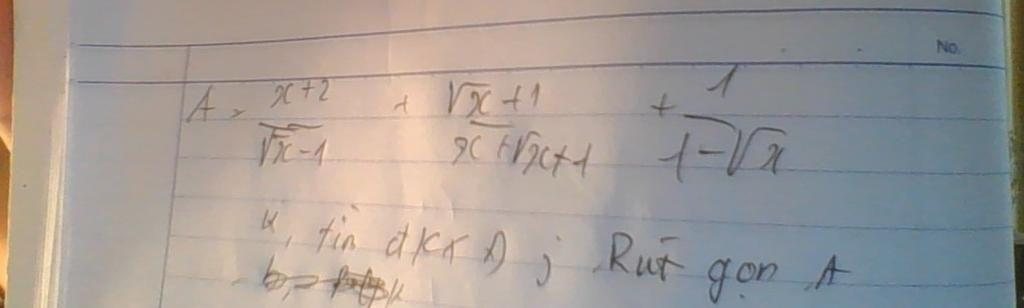 No.
A = \frac{x+2}{\sqrt{x}-1} + \frac{\sqrt{x}+1}{x+\sqrt{x}+1} + \frac{1}{1-\sqrt{x}}
a, tìn đkxđ ; Rút gọn A
b,